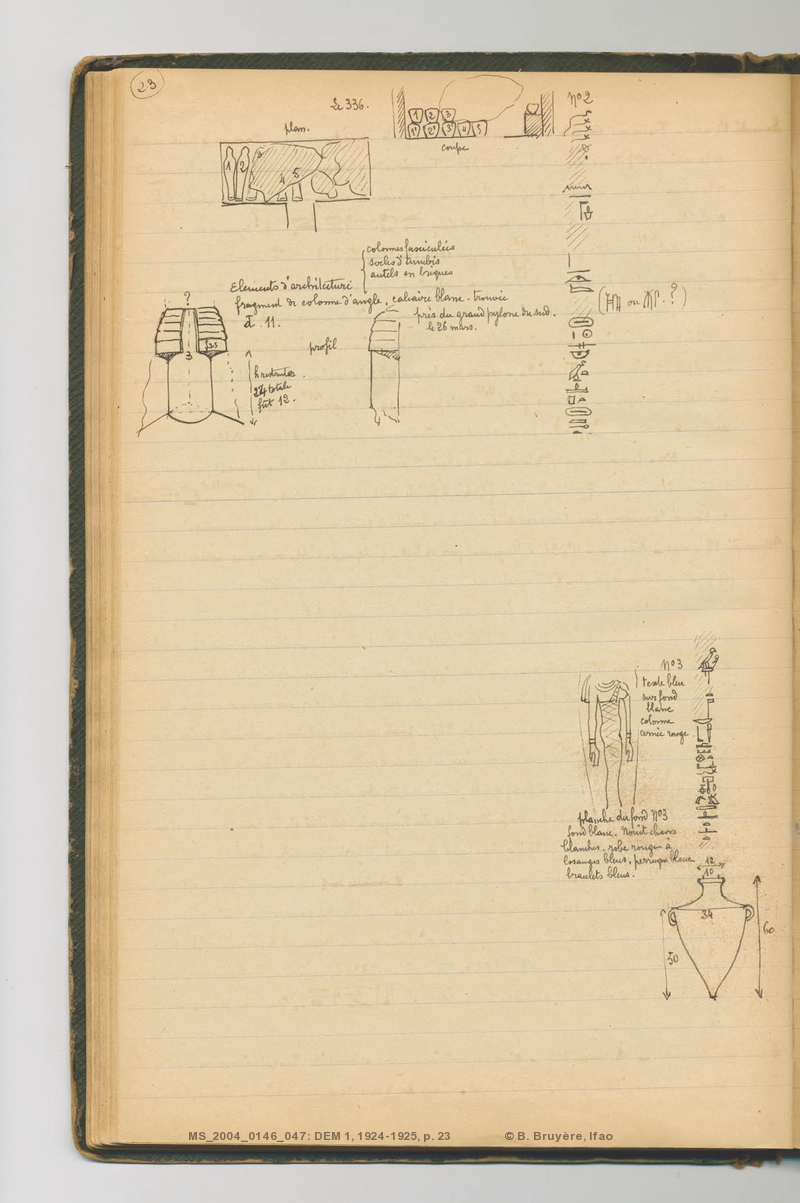 23
Le 336.
plan.
1 2 3 4 5
1 2 3
1' 2' 3' 4 5
coupe
N°2
colonnes fasciculées
socles d'
autels en briques
Eléments d'architecture
fragment de colonne d'angle, calcaire blanc. trouvée
près du grand pylone du sud.
le 26 mars.
?
d. 11.
3
profil
24 totale
fût 12.
( ou ?)
N°3
texte bleu
sur fond
blanc
colonne
cernée rouge
planche du fond N°3
fond blanc. Nouït chairs
blanches. robe rouge à
losanges bleus, perruque bleue
bracelets bleus.
12
10
34
50
60
MS_2004_0146_047: DEM 1, 1924-1925, p. 23 © B. Bruyère, Ifao